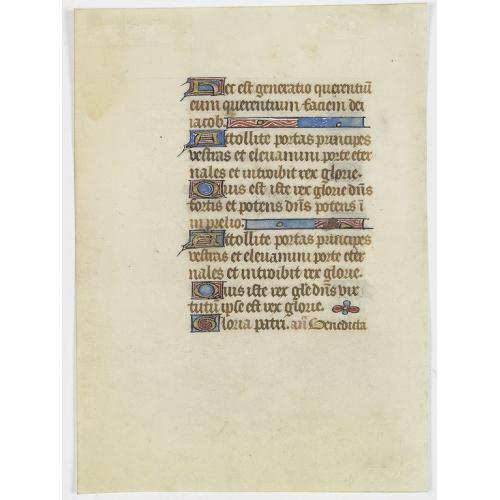 Hec est generatio querentiū
eum querentium faciem dei
iacob.
Attollite portas principes
vestras et eleuamini porte eter
nales et introibit rex glorie.
Quis est iste rex glorie dn̄s
fortis et potens dn̄s potens ī
in prelio.
Attollite portas principes
vestras et eleuamini porte eter
nales et introibit rex glorie.
Quis iste rex gl̄e dn̄s vir
tutū ipse est rex glorie.
Gloria patri. an̄ Benedicta